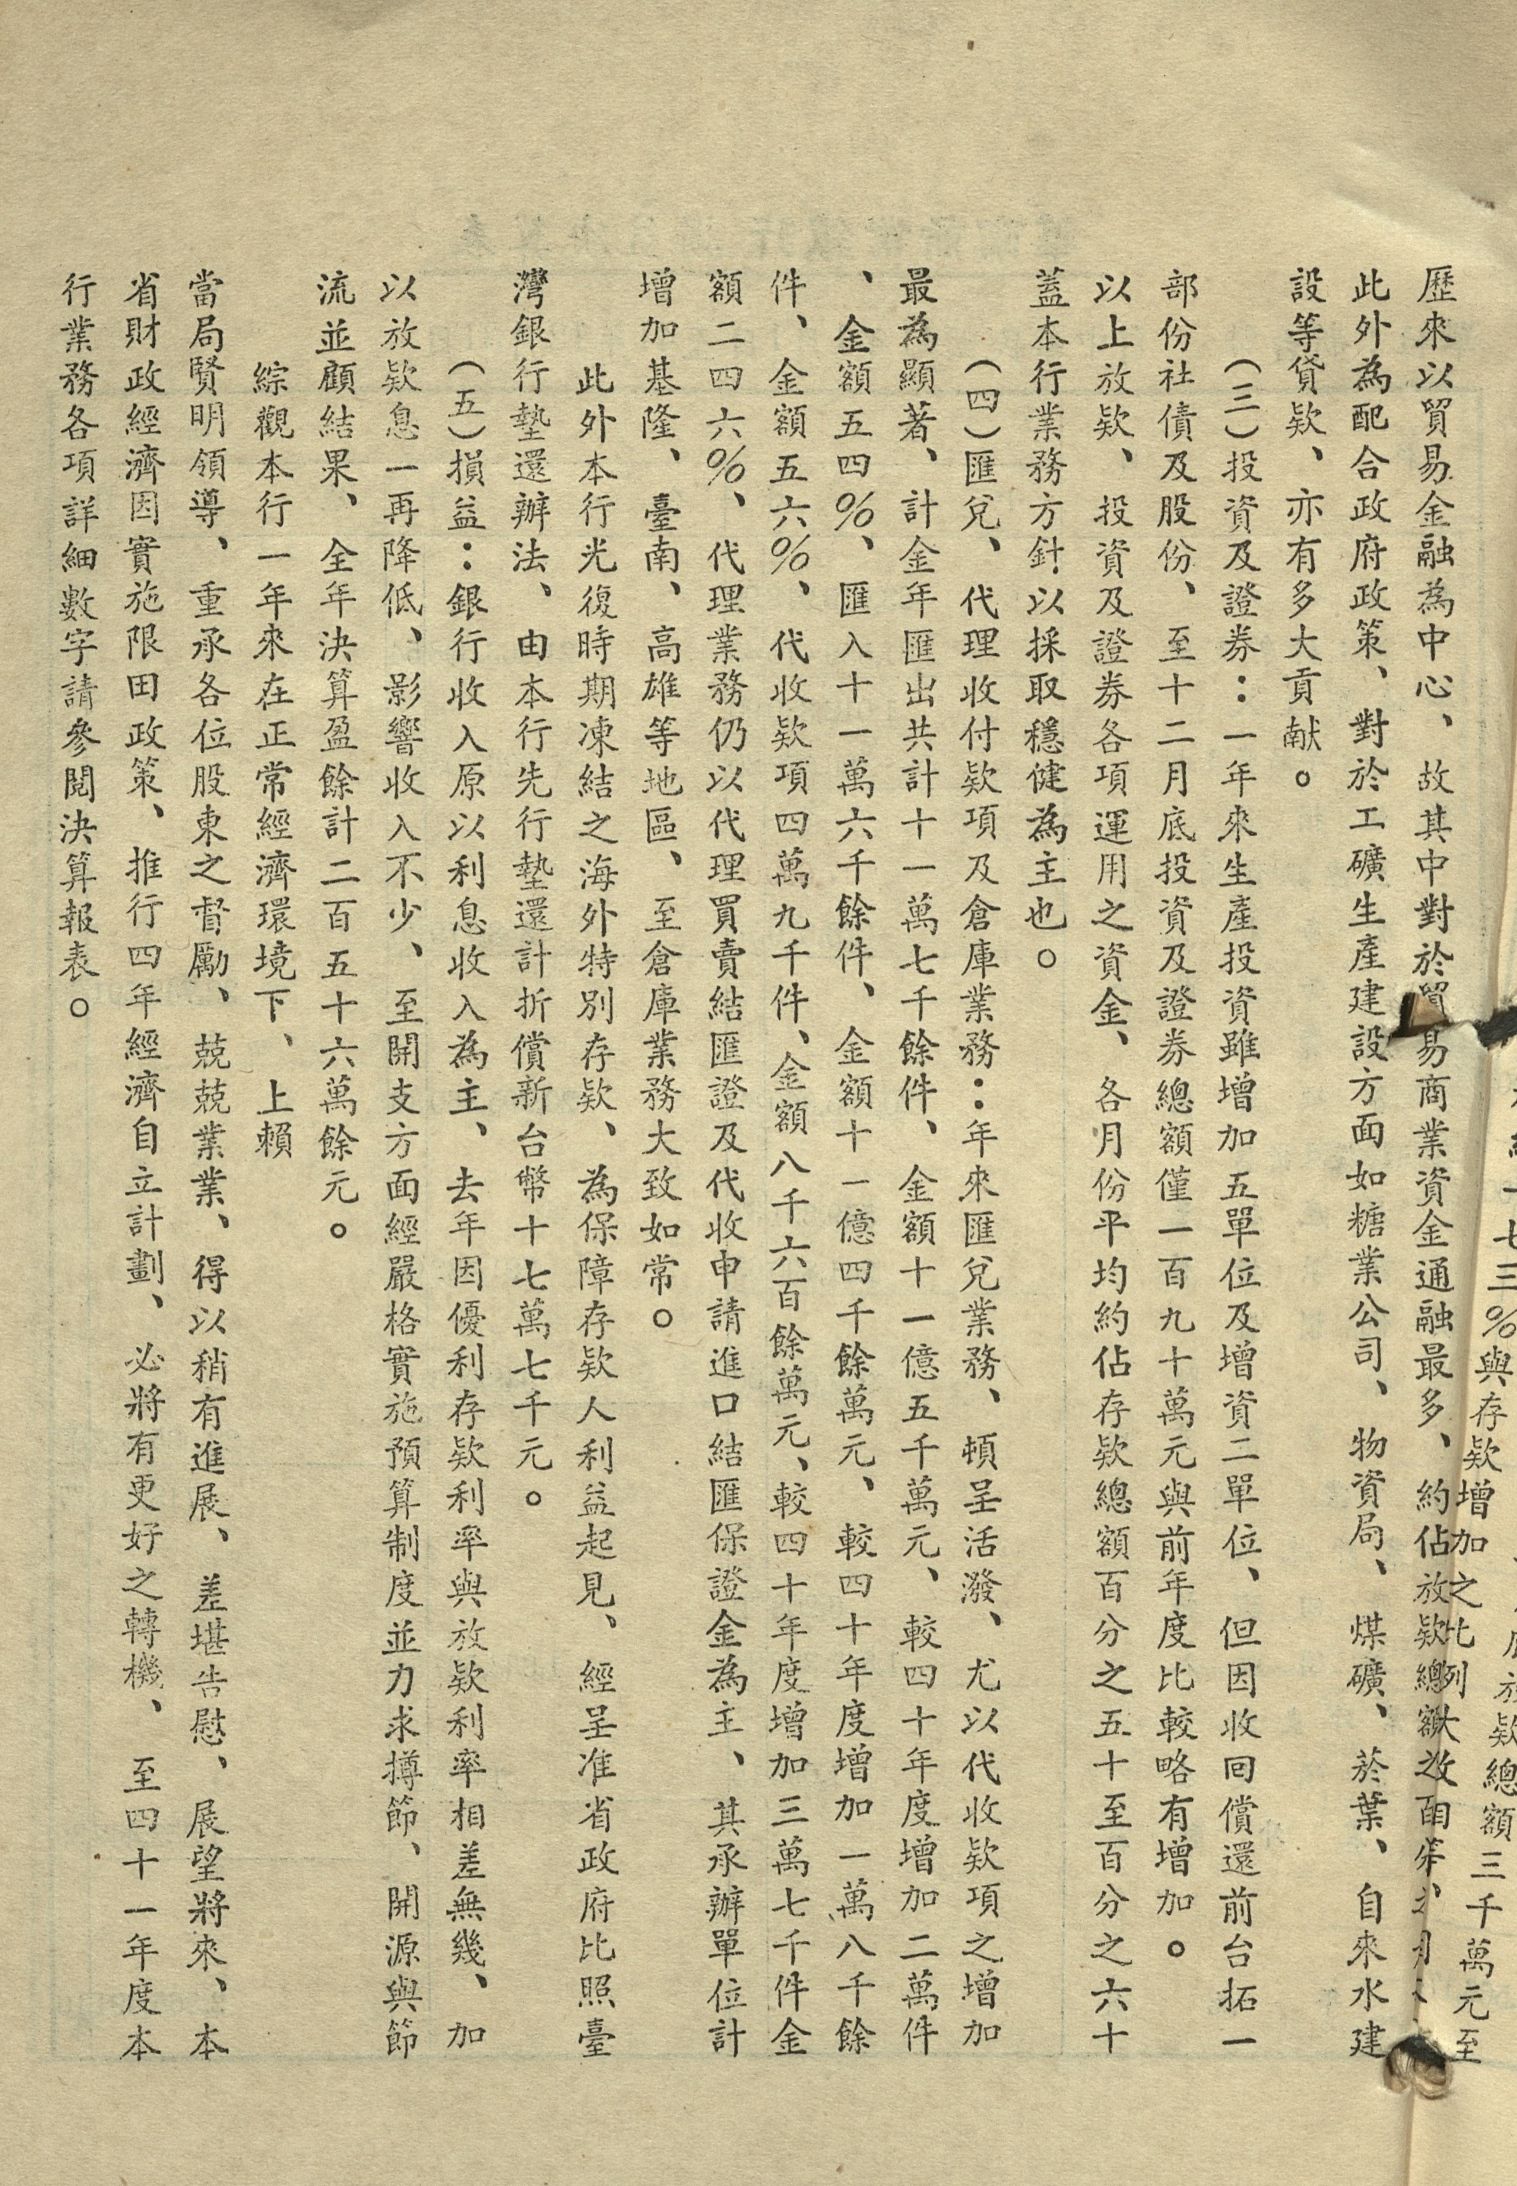 歷來以貿易金融為中心、故其中對於貿易商業資金通融最多、約佔放欵總額
此外為配合政府政策、對於工礦生產建設方面如糖業公司、物資局、煤礦、菸葉、自來水建
設等貸欵、亦有多大貢献。
(三)投資及證券:一年來生產投資雖增加五單位及增資二單位、但因收回償還前台拓一
部份社債及股份、至十二月底投資及證券總額僅一百九十萬元與前年度比較略有增加。
以上放欵、投資及證券各項運用之資金、各月份平均約佔存欵總額百分之五十至百分之六十
蓋本行業務方針以採取穩健為主也。
(四)匯兌、代理收付欵項及倉庫業務:年來匯兌業務、頓呈活潑、尤以代收欵項之增加
最為顯著、計金年匯出共計十一萬七千餘件、金額十一億五千萬元、較四十年度增加二萬件
、金額五四%、匯入十一萬六千餘件、金額十一億四千餘萬元、較四十年度增加一萬八千餘
件、金額五六%、代收欵項四萬九千件、金額八千六百餘萬元、較四十年度增加三萬七千件金
額二四六%、代理業務仍以代理買賣結匯證及代收申請進口結匯保證金為主、其承辦單位計
增加基隆、臺南、高雄等地區、至倉庫業務大致如常。
此外本行光復時期凍結之海外特別存欵、為保障存欵人利益起見、經呈准省政府比照臺
灣銀行墊還辦法、由本行先行墊還計折償新台幣十七萬七千元。
(五)損益:銀行收入原以利息收入為主、去年因優利存欵利率與放欵利率相差無幾、加
以放欵息一再降低、影響收入不少、至開支方面經嚴格實施預算制度並力求撙節、開源與節
流並顧結果、全年決算盈餘計二百五十六萬餘元。
綜觀本行一年來在正常經濟環境下、上賴
當局賢明領導、重承各位股東之督勵、兢兢業業、得以稍有進展、差堪告慰、展望將來、本
省財政經濟因實施限田政策、推行四年經濟自立計劃、必將有更好之轉機、至四十一年度本
行業務各項詳細數字請參閱決算報表。